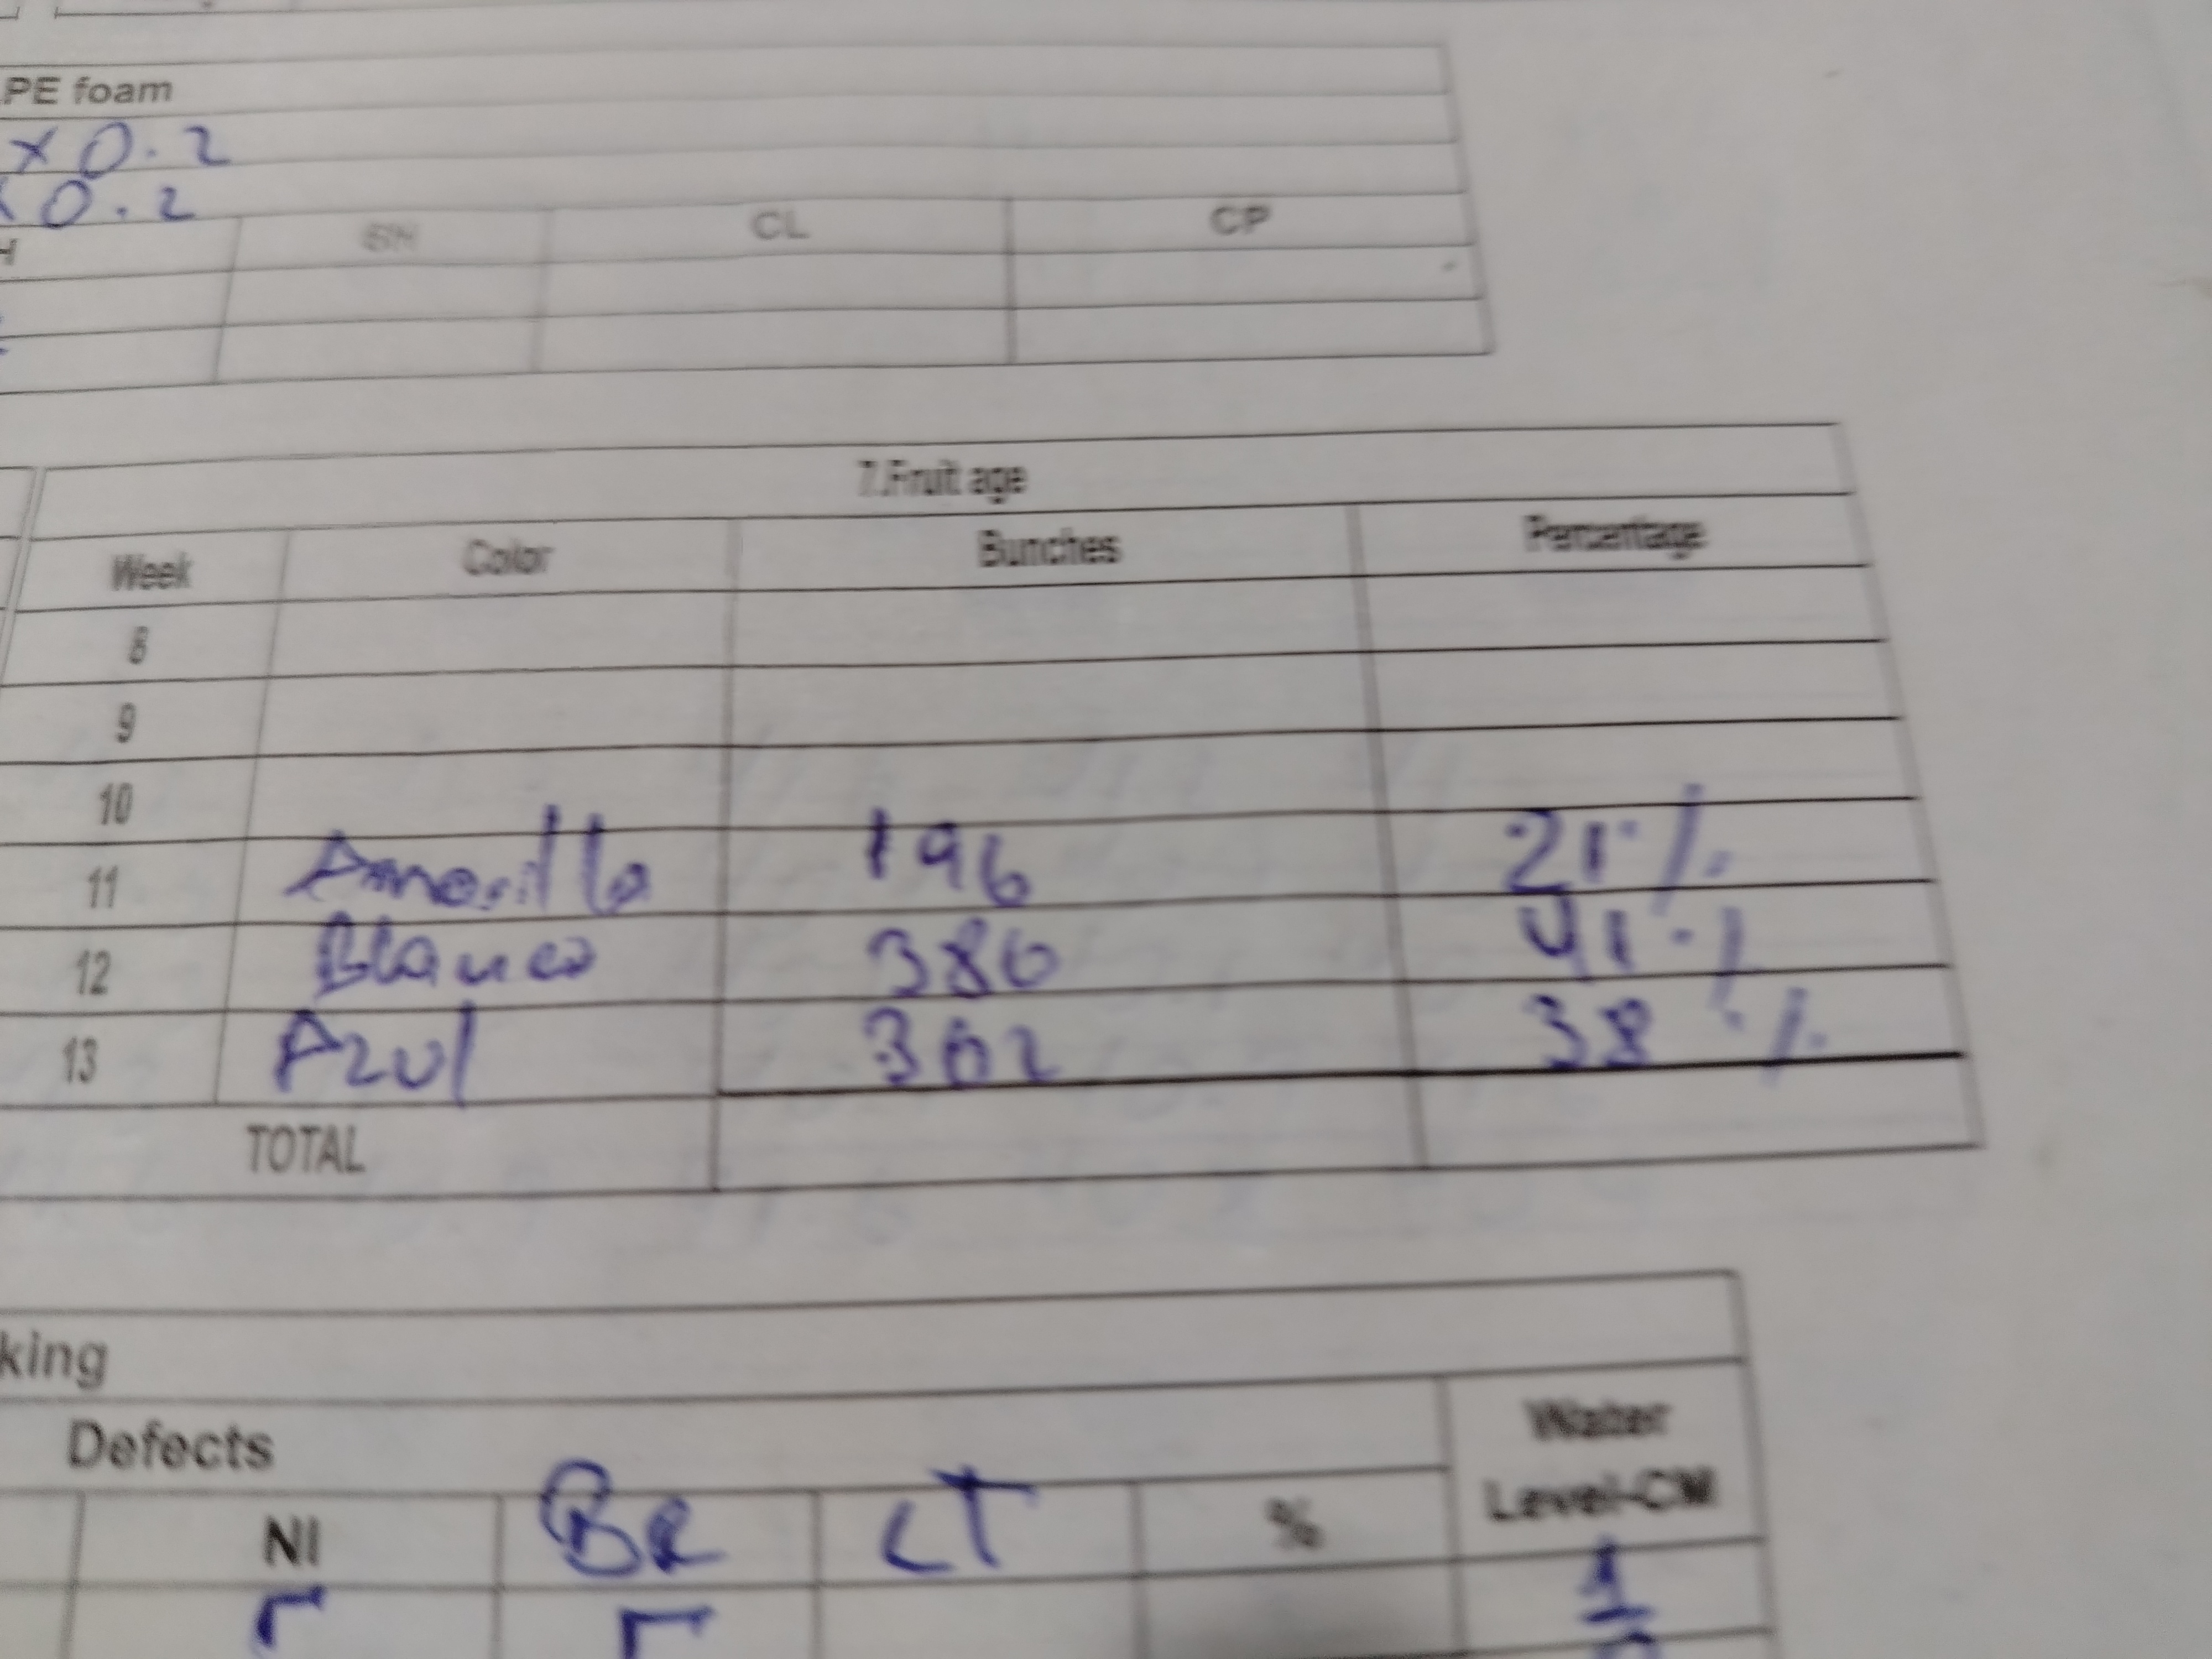 PE foam
x 0.2
x 0.2
H SH CL CP
7.Fruit age
Week Color Bunches Percentage
8
9
10
11 Amarillo 196 21%
12 Blanco 386 41%
13 Azul 362 38%
TOTAL
king
Defects Water Level-CM
NI BR LT %